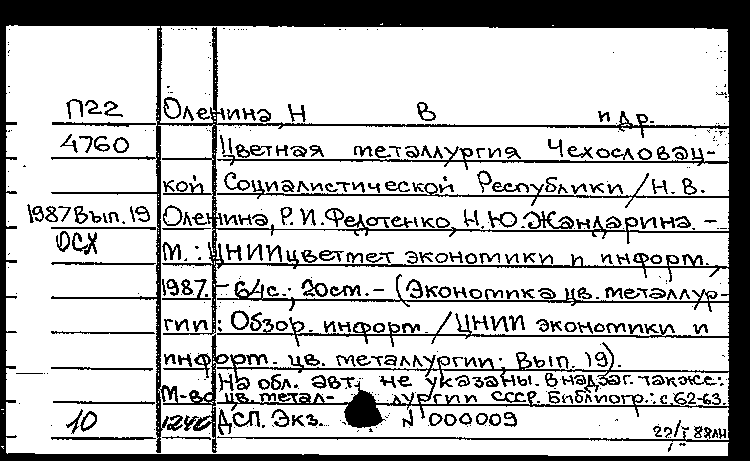 П22 Оленина, Н В и др.
4760 Цветная металлургия Чехословац-
кой Социалистической Республики / Н. В.
1987 Вып. 19 Оленина, Р. И. Федотенко, Н. Ю. Жандарина. –
ОСХ М. : ЦНИИцветмет экономики и информ.,
1987. – 64 с. ; 20 см. – (Экономика цв. металлур-
гии : Обзор. информ. / ЦНИИ экономики и
информ. цв. металлургии; Вып. 19).
На обл. авт. не указаны. В надзаг. также:
М-во цв. метал- лургии СССР. Библиогр.: с. 62-63.
10 1240 ДСП. Экз. № 000009